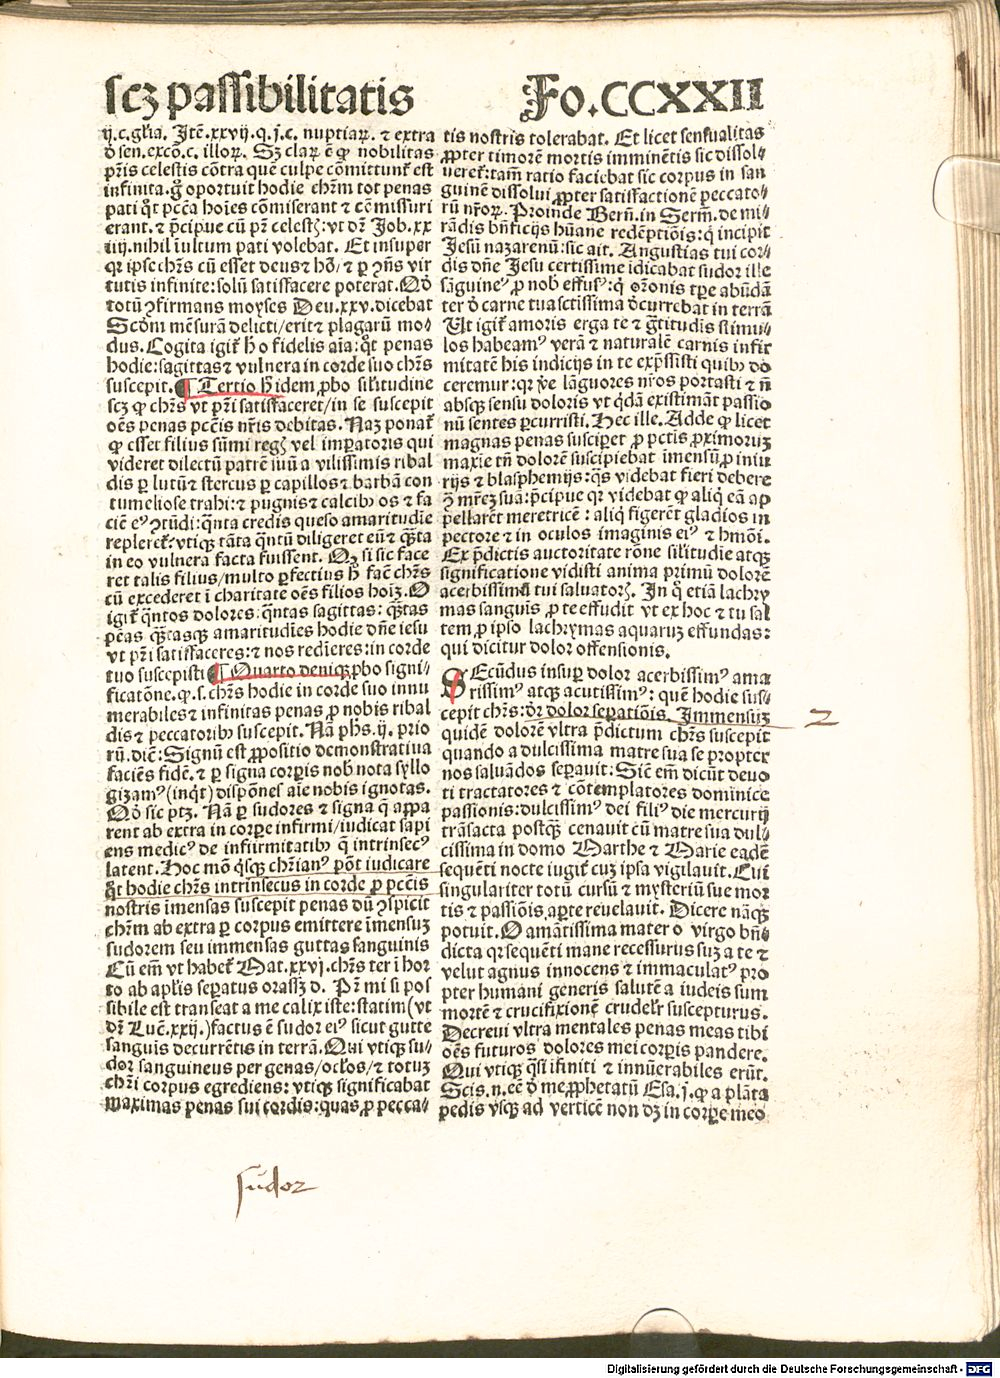 scꝫ passibilitatis
Fo.CCXXII
ij.c.gl̄ia. Jtē.xxvij.q.j.c. nuptiaꝝ. ⁊ extra
ð sen.excō.c. illoꝝ. Sꝫ claꝝ ē ꝙ nobilitas
pr̄is celestis cōtra quē culpe cōmittunt̄ est
infinita.ḡ oportuit hodie chr̄m tot penas
pati qͦt pctā hoīes cōmiserant ⁊ cōmissuri
erant. ⁊ p̄cipue cū pr̄ celestꝭ: vt dr̄ Job.xx
iiij.nihil īultum pati volebat. Et insuper
qꝛ ipse chr̄s cū esset deus⁊ hō/ ⁊ ꝑ ꝯn̄s vir
tutis infinite: solū satisfacere poterat. Qð
totū ꝯfirmans moyses Deu.xxv.dicebat
Scðm mēsurā delicti/erit⁊ plagarū mo-
dus. Cogita igit̄ h̄ o fidelis aīa: qͦt penas
hodie: sagittas⁊ vulnera in corde suo chr̄s
suscepit. ¶ Tertio h̄ idem ꝓbo sil̄itudine
scꝫ ꝙ chr̄s vt pr̄i satisfaceret/in se suscepit
oēs penas pctīs nr̄is debitas. Naꝫ ponat̄
ꝙ esset filius sūmi regꝭ vel imꝑatoris qui
videret dilectū patrē suū a vilissimis ribal
dis ꝑ lutū⁊ stercus ꝑ capillos⁊ barbā con
tumeliose trahi: ⁊ pugnis⁊ calcibꝰ os ⁊ fa
ciē eiꝰ ꝯtūdi: qͣnta credis queso amaritudīe
repleret̄: vtiqꝫ tāta qͣntū diligeret eū⁊ qͣꝫta
in eo vulnera facta fuissent. Qꝫ si sic face
ret talis filius/multo ꝑfectius h̄ facͭ chr̄s
cū excederet ī charitate oēs filios hoīꝫ. O
igit̄ qͣntos dolores: qͣntas sagittas: qͣꝫtas
pēas qͣꝫtasqꝫ amaritudīes hodie dn̄e iesu
vt pr̄i satisfaceres: ⁊ nos redieres: in corde
tuo suscepisti ¶ Quarto deniqꝫ ꝓbo signi-
ficatōne.ꝙ.s.chr̄s hodie in corde suo innu
merabiles⁊ infinitas penas ꝓ nobis ribal
dis⁊ peccatoribꝰ suscepit. Nā phs.ij. prio
rū.dicͭ: Signū est ꝓpositio demonstratiua
faciēs fidē. ⁊ ꝑ signa corpīs nob̄ nota syllo
gizamꝰ (inqͭ) disposiōnes aīe nobis ignotas.
Qð sic ptꝫ. Nā ꝑ sudores ⁊ signa q̄ appa
rent ab extra in corꝑe infirmi/iudicat sapi
ens medicꝰ de infirmitatibꝰ q̄ intrinsecꝰ
latent. Hoc mō qͥsqꝫ chr̄ianꝰ pōt iudicare
qͦt hodie chr̄s intrinsecus in corde ꝓ pctīs
nostris īmensas suscepit penas dū ꝯspicit
chr̄m ab extra ꝑ corpus emittere īmensuꝫ
sudorem seu immensas guttas sanguinis
Cū em̄ vt habet̄ Mat.xxvj.chr̄s ter ī hor
to ab apl̄is seꝑatus orassꝫ d. Pr̄ mi si pos
sibile est transeat a me calix iste: statim (vt
dr̄ Luc̄.xxij.)factus ē sudor eiꝰ sicut gutte
sanguis decurrētis in terrā. Qui vtiqꝫ su-
dor sanguineus per genas/oclōs/⁊ totuꝫ
chr̄i corpus egrediens: vtiqꝫ significabat
maximas penas sui cordis: quas ꝓ pecca-
tis nostris tolerabat. Et licet sensualitas
ꝓpter timorē mortis imminētis sic dissol-
ueret̄: tam̄ ratio faciebat sic corpus in san
guinē dissolui ꝓpter satisfactionē peccato-
rū nr̄oꝝ. Proinde Bern̄.in Serm̄. de mi-
rādis bn̄ficijs hūane redēptiōis: q̄ incipit
Jesū nazarenū: sic ait. Angustias tui cor-
dis dn̄e Jesu certissime īdicabat sudor ille
sāguineꝰ ꝓ nob̄ effusꝰ: q̄ orōnis tꝑe abūdā
ter ð carne tua sctīssima ðcurrebat in terrā
Ut igit̄ amoris erga te ⁊ gr̄titudīs stimu-
los habeamꝰ verā ⁊ naturalē carnis infir
mitatē his indicijs in te exp̄ssisti quibꝰ do
ceremur: qꝛ ve̅ lāguores nr̄os portasti ⁊ n̄
absqꝫ sensu doloris vt qͥdā existimāt passio
nū sentes ꝑcurristi. Hec ille. Adde ꝙ licet
magnas penas susciꝑet ꝓ pctīs ꝓximoruꝫ
maxīe tn̄ dolorē suscipiebat imensū ꝓ iniu
rijs ⁊ blasphemijs: qͣs videbat fieri debere
ꝯ̄ mr̄eꝫ suā: p̄cipue qꝛ videbat ꝙ aliqͥ eā ap
pellarēt meretricē: aliqͥ figerēt gladios in
pectore ⁊ in oculos imaginis eiꝰ ⁊ hmōi.
Ex p̄dictis auctoritate rōne sil̄itudīe atqꝫ
significatione vidisti anima primū dolorē
acerbissimū tui saluatorꝭ. Jn qͦ etiā lachry
mas sanguis ꝓ te effudit vt ex hoc ⁊ tu sal
tem ꝓ ipso lachrymas aquaruꝫ effundas:
qui dicitur dolor offensionis.
SEcūdus insuꝑ dolor acerbissimꝰ ama
rissimꝰ atqꝫ acutissimꝰ: quē hodie sus-
cepit chr̄s: dr̄ dolor seꝑatiōis. Jmmensuꝫ
quidē dolorē vltra p̄dictum chr̄s suscepit
quando a dulcissima matre sua se propter
nos saluādos seꝑauit: Sic̄ em̄ dicūt deuo
ti tractatores ⁊ cōtemplatores dominice
passionis: dulcissimꝰ dei filiꝰ die mercurij
trāsacta postqꝫ cenauit cū matre sua dul-
cissima in domo Marthe ⁊ Marie eadē
sequēti nocte iugit̄ cuꝫ ipsa vigilauit. Cui
singulariter totū cursū ⁊ mysteriū sue mor
tis ⁊ passiōis aꝑte reuelauit. Dicere nāqꝫ
potuit. O amātissima mater o virgo bn̄-
dicta qꝛ sequēti mane recessurus suꝫ a te ⁊
velut agnus innocens ⁊ immaculatꝰ pro
pter humani generis salutē a iudeis sum
mortē ⁊ crucifixionē crudelr̄ suscepturus.
Decreui vltra mentales penas meas tibi
oēs futuros dolores mei corpīs pandere.
Qui vtiqꝫ qͣsi īfiniti ⁊ innūerabiles erūt.
Scis.n.eē ð me ꝓphetatū Esa.j.ꝙ a plāta
pedis vsqꝫ ad verticē non dꝫ in corꝑe meo
2
sudor
Digitalisierung gefördert durch die Deutsche Forschungsgemeinschaft - DFG